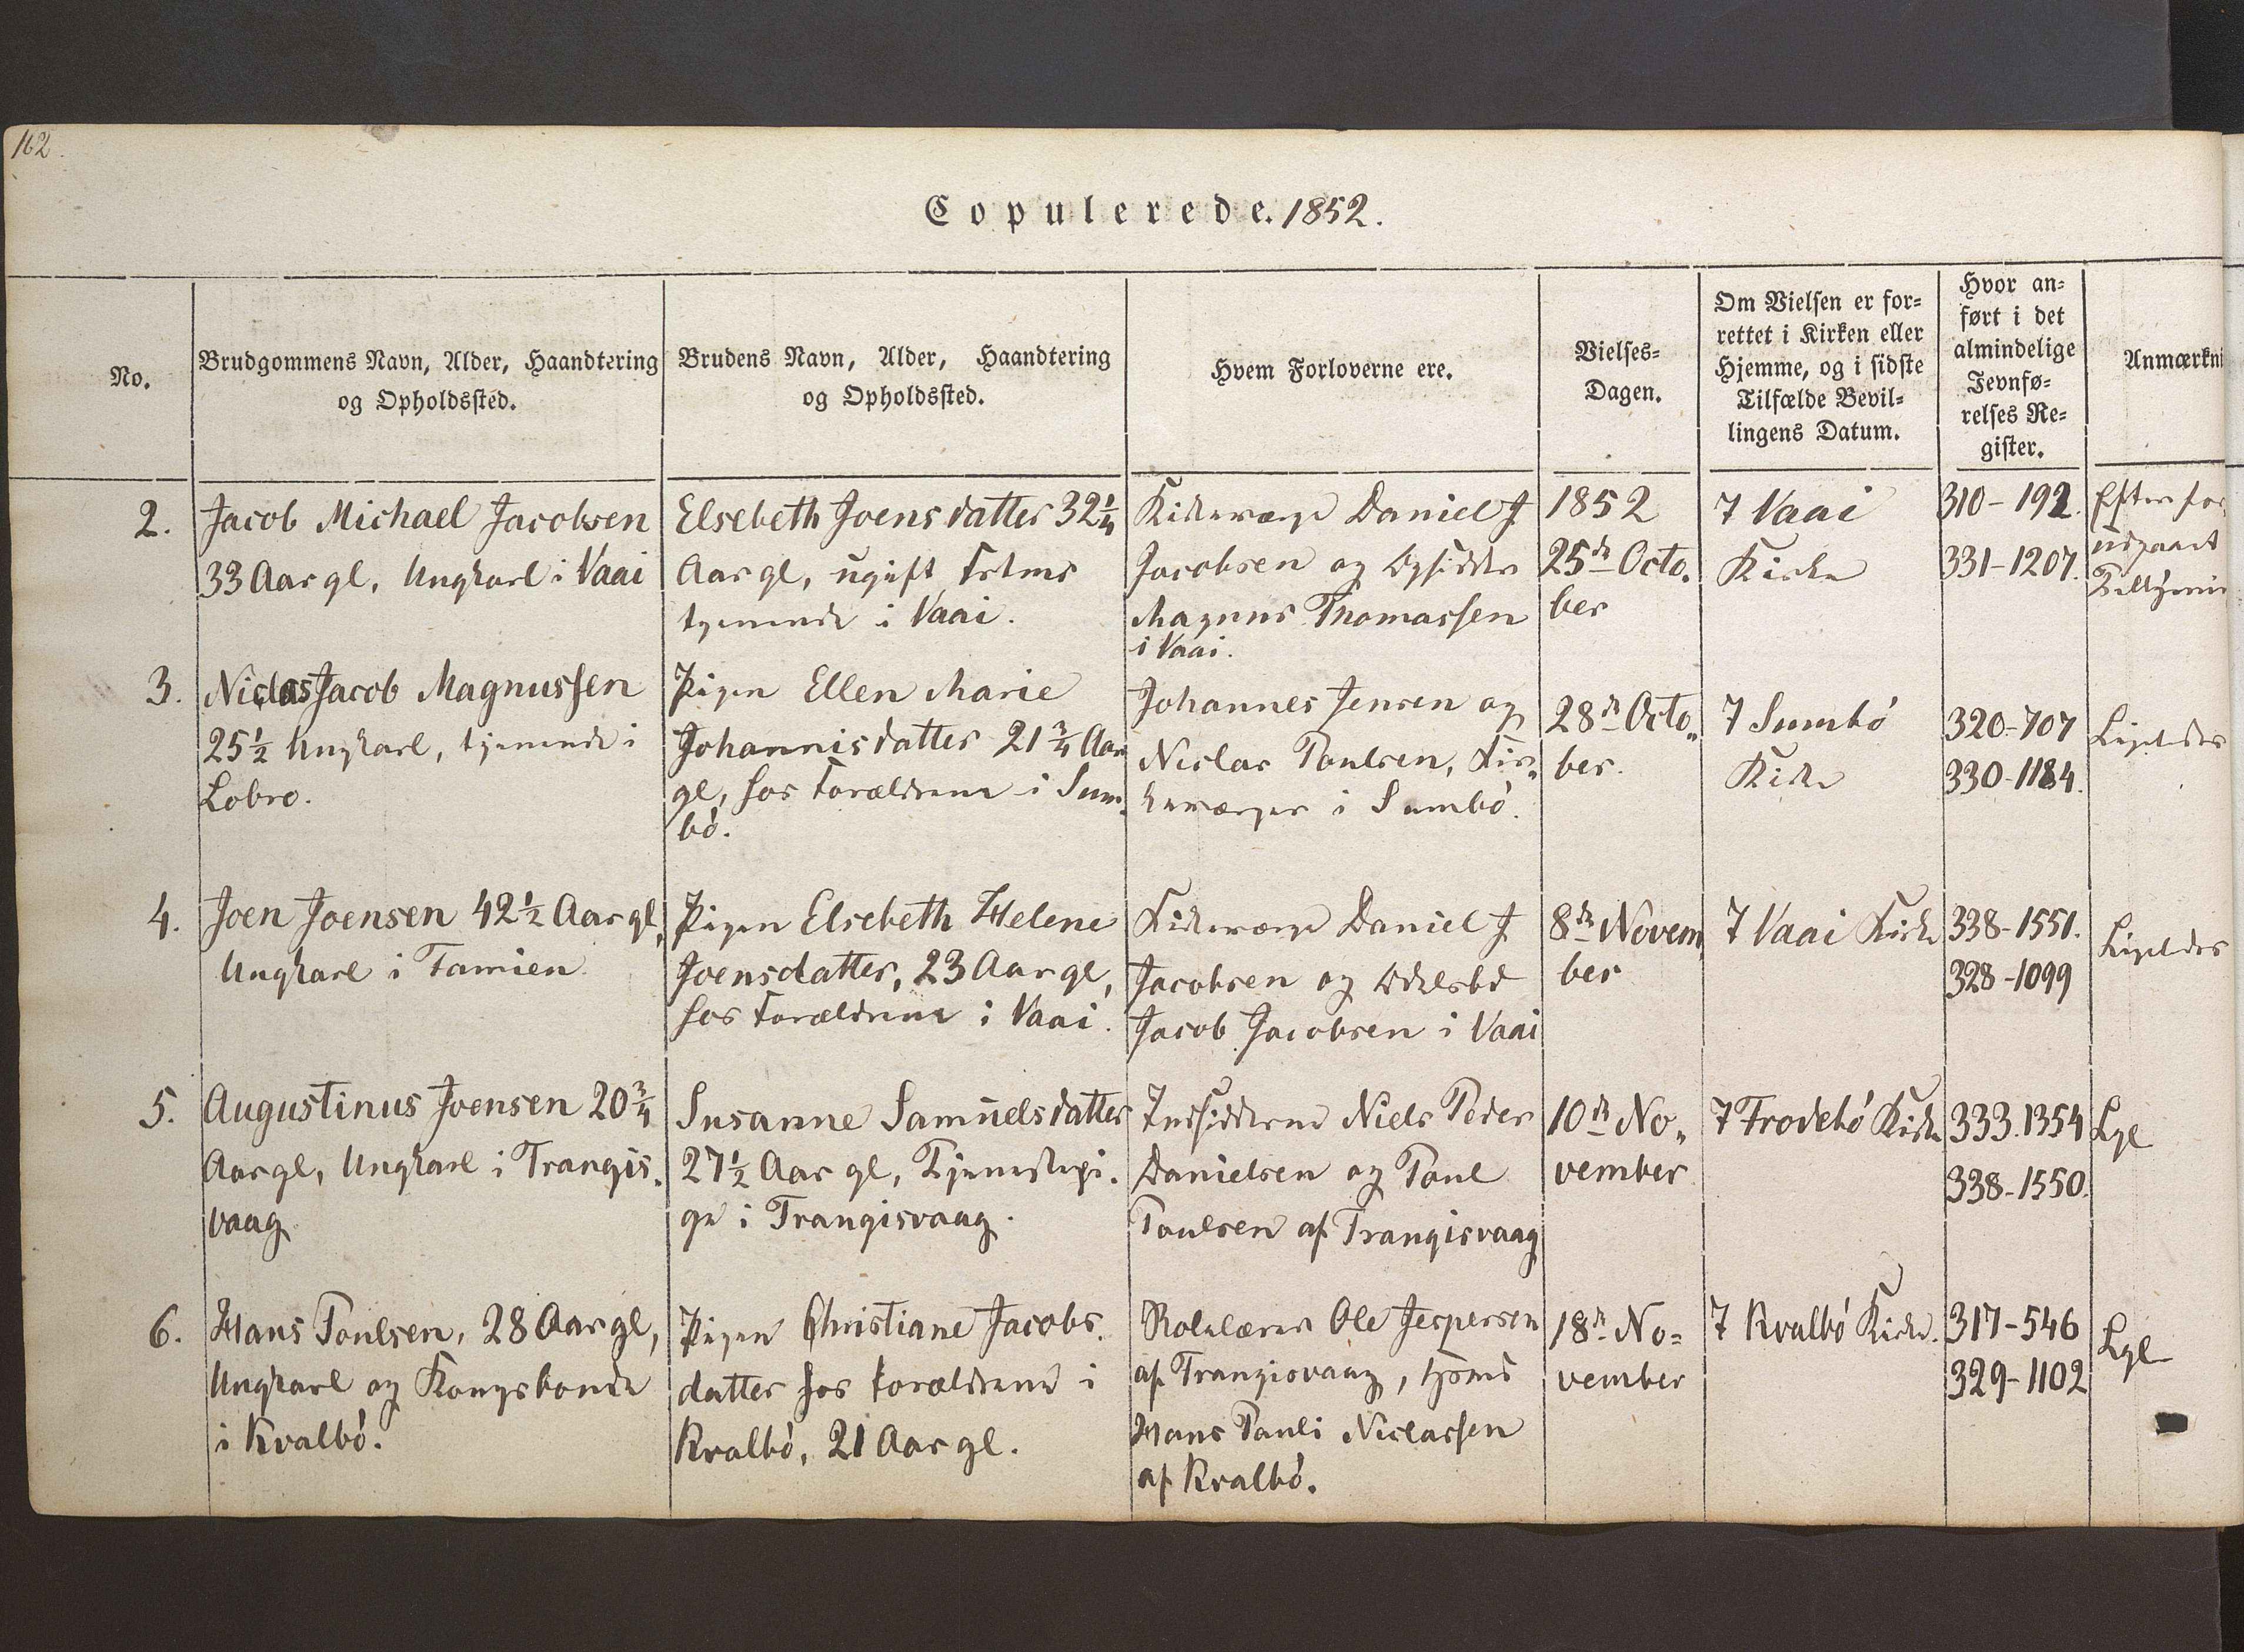 162.
Copulerede. 1852.
No.
Brudgommens Navn, Alder, Haandtering
og Opholdssted.
Brudens Navn, Alder, Haandtering
og Opholdssted.
Hvem Forloverne ere.
Vielses-
Dagen.
Om Vielsen er for-
rettet i Kirken eller
Hjemme, og i sidste
Tilfælde Bevil-
lingens Datum.
Hvor an-
ført i det
almindelige
Jevnfø-
relses Re-
gister.
Anmærkni
2.
Jacob Michael Jacobsen
33 Aar gl, Ungkarl i Vaai
Elsebeth Joensdatter 32 1/4
Aar gl, ugift
tjenende i Vaai.
Kirkeværge Daniel J
Jacobsen og Opsidder
Magnus Thomassen
i Vaai.
1852
25de Octo„
ber
I Vaai
Kirke
310-192.
331-1207.
Efter for
udgaaet
3.
Niclas Jacob Magnussen
25 1/2 Ungkarl, tjenende i
Lobro.
Pigen Ellen Marie
Johannisdatter 21 3/4 Aar
gl, hos Forældrene i Sum„
bó.
Johannes Jensen og
Niclas Poulsen, Kir„
keværger i Sumbó.
28de Octo„
ber.
I Sumbó
Kirke
320-707
330-1184.
Ligeledes
4.
Joen Joensen 42 1/2 Aar gl,
Ungkarl i Famien
Pigen Elsebeth Helene
Joensdatter, 23 Aar gl,
hos Forældrene i Vaai.
Kirkeværge Daniel J
Jacobsen og
Jacob Jacobsen i Vaai
8de Novem„
ber
I Vaai Kirke
338-1551.
328-1099
Ligeledes
5.
Augustinus Joensen 20 3/4
Aar gl, Ungkarl i Trangis„
vaag
Susanne Samuelsdatter
27 1/2 Aar gl, Tjenestepi„
ge i Trangisvaag.
Indsidderne Niels Peder
Danielsen og Poul
Poulsen af Trangisvaag
10de No„
vember
I Frodebó Kirke
333.1354
338-1550.
Lgl
6.
Hans Poulsen, 28 Aar gl,
Ungkarl og Kongsbonde
i Kvalbó.
Pigen Christiane Jacobs„
datter hos Forældrene i
Kvalbó, 21 Aar gl.
Skolelærer Ole Jespersen
af Trangisvaag,
Hans Pauli Niclassen
af Kvalbó.
18de No=
vember
I Kvalbó Kirke.
317-546
329-1102
Lgl